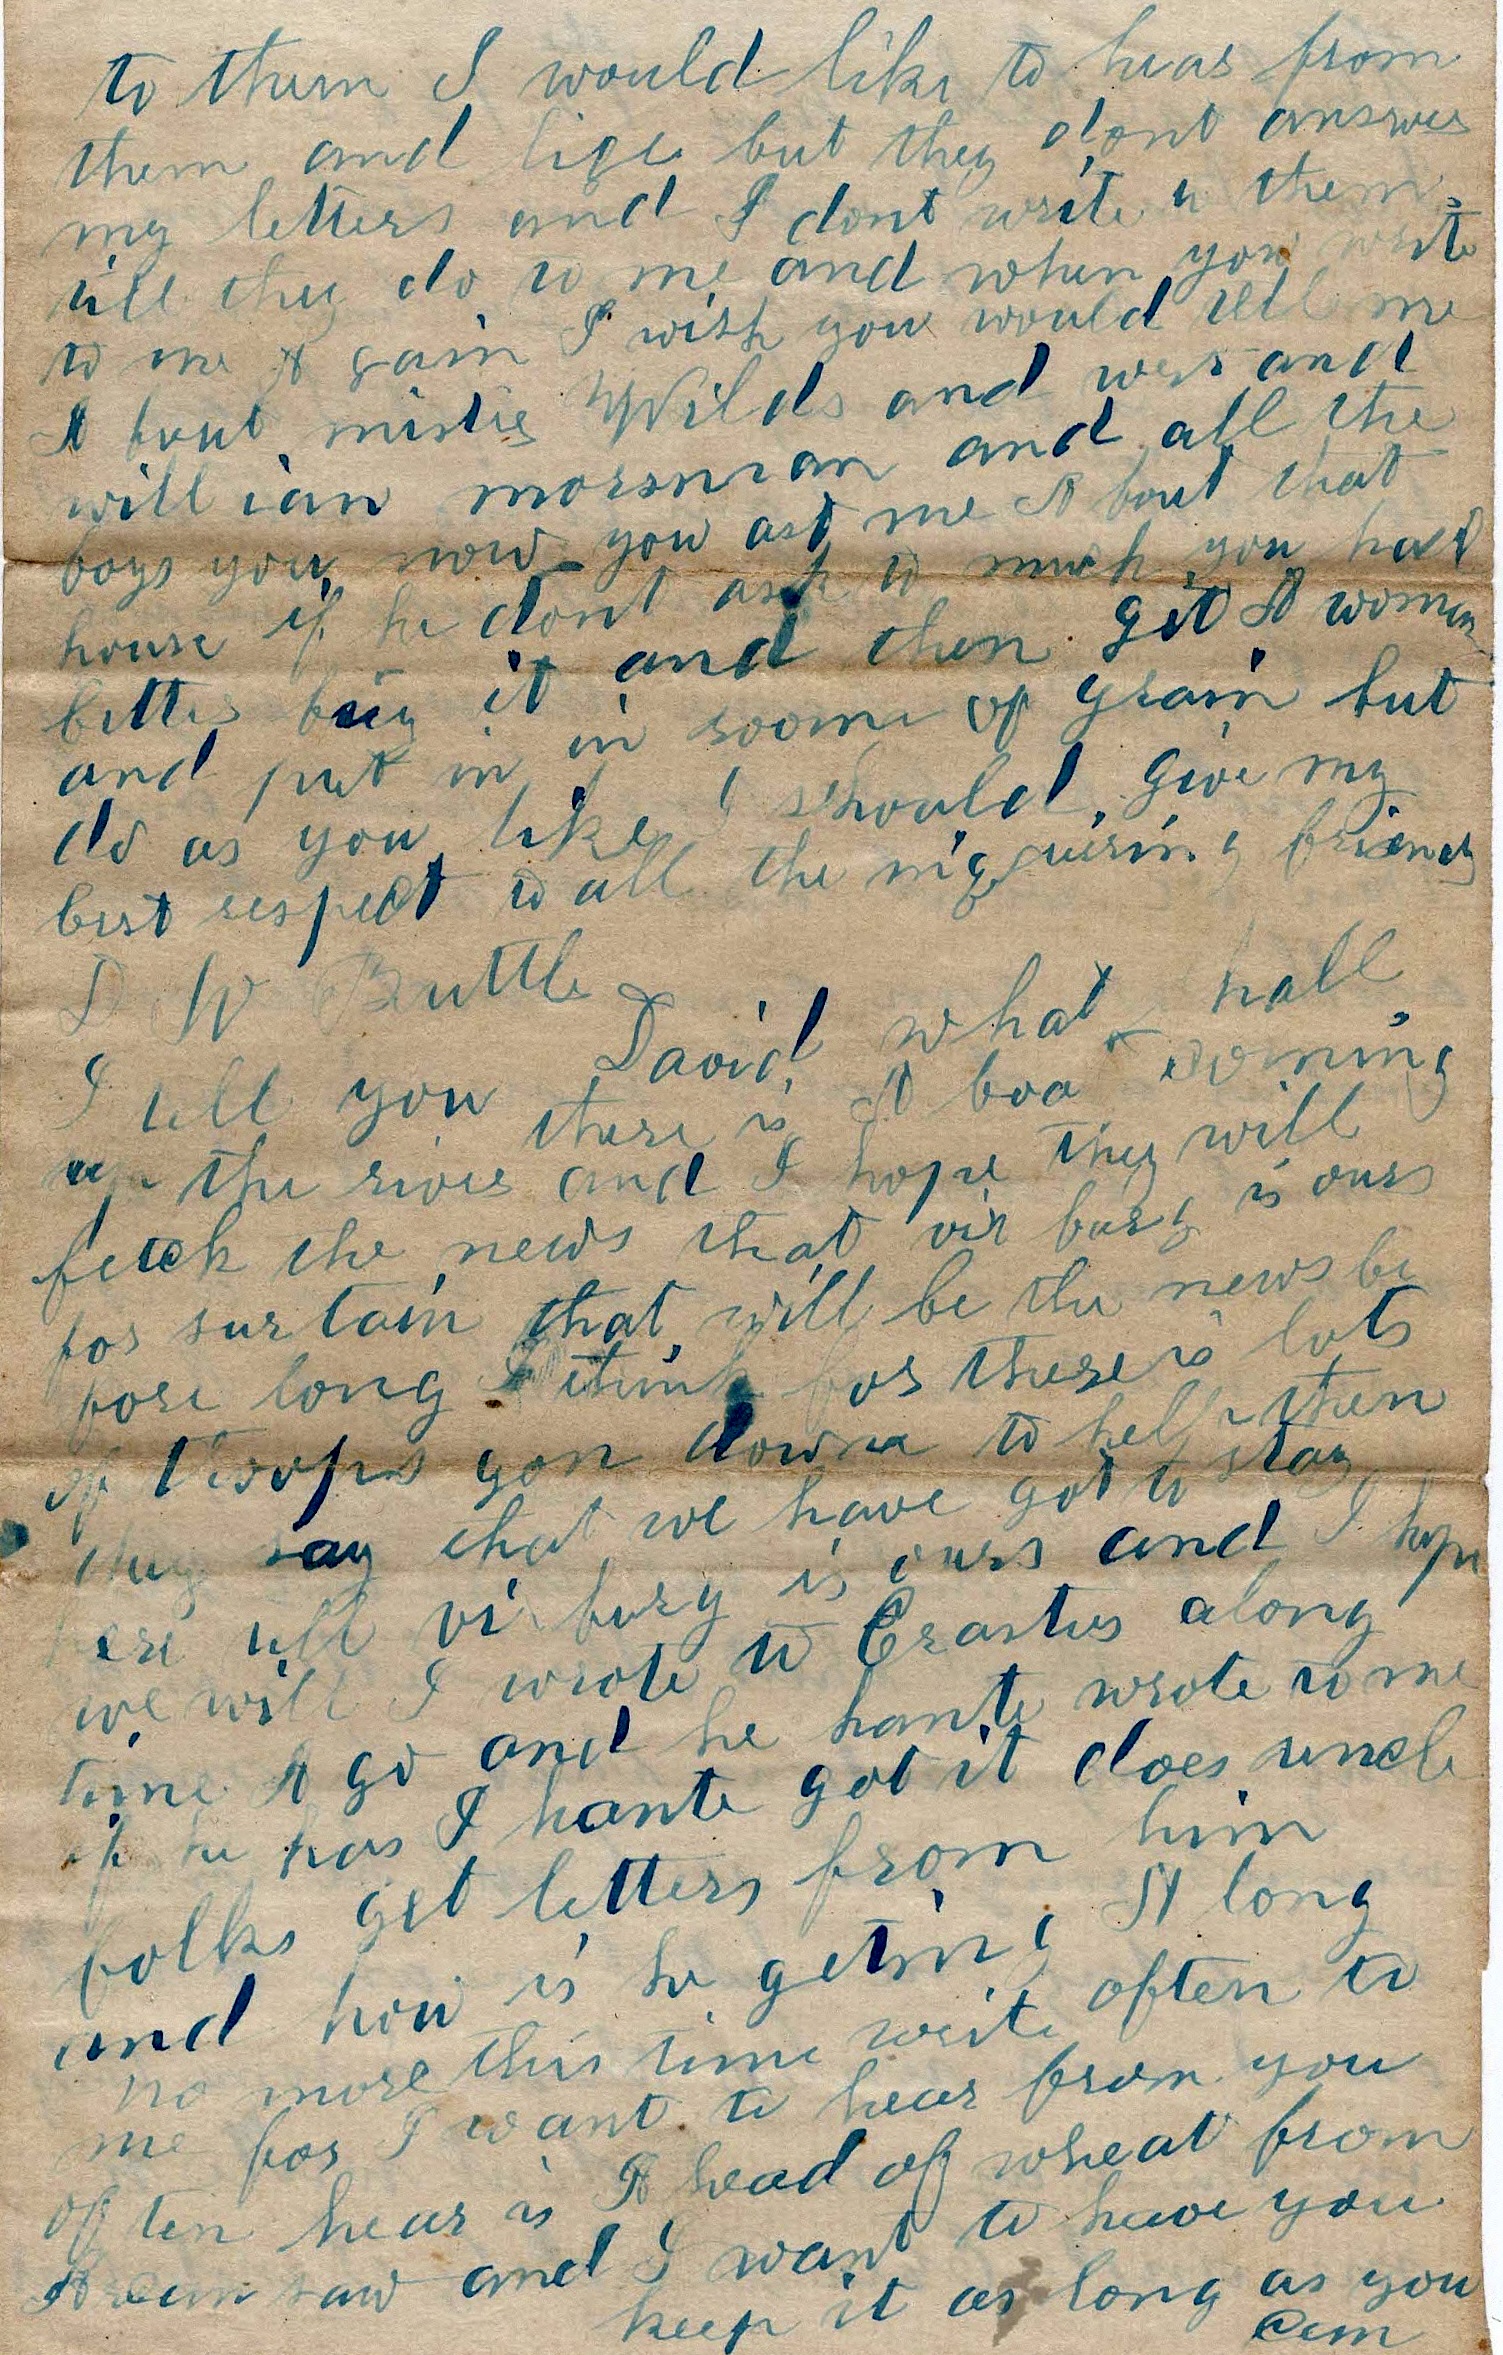 to them I would like to hear from
them and lige but they dont answer
my letters and I dont write to them
till they do to me and when you write
to me A gain I wish you would tell me
A bout mister Wilds and wers and
will ian morsman and all the
boys you now you ast me A bout that
house if he dont ask to much you had
better buy it and then get A women
and put in in roome of grain but
do as you like I should give my
best respect to all the inquiring friends
D W Buttle
David what hall
I tell you there is A boat coming
up the river and I hope they will
fetch the news that vix burg is ours
for surtain that will be the news be
fore long I think for there is lots
of troops gon down to help then
they say that we have got to stay
here till vix burg is ours and I hope
we will I wrote to Erastus along
time A go and he hante wrote to me
if he has I hante got it does uncle
folks get letters from him
and how is he geting A long
no more this time write often to
me for I want to hear from you
of ten hear is A head of wheat from
Arcan saw and I want to have you
keep it as long as you
Cem